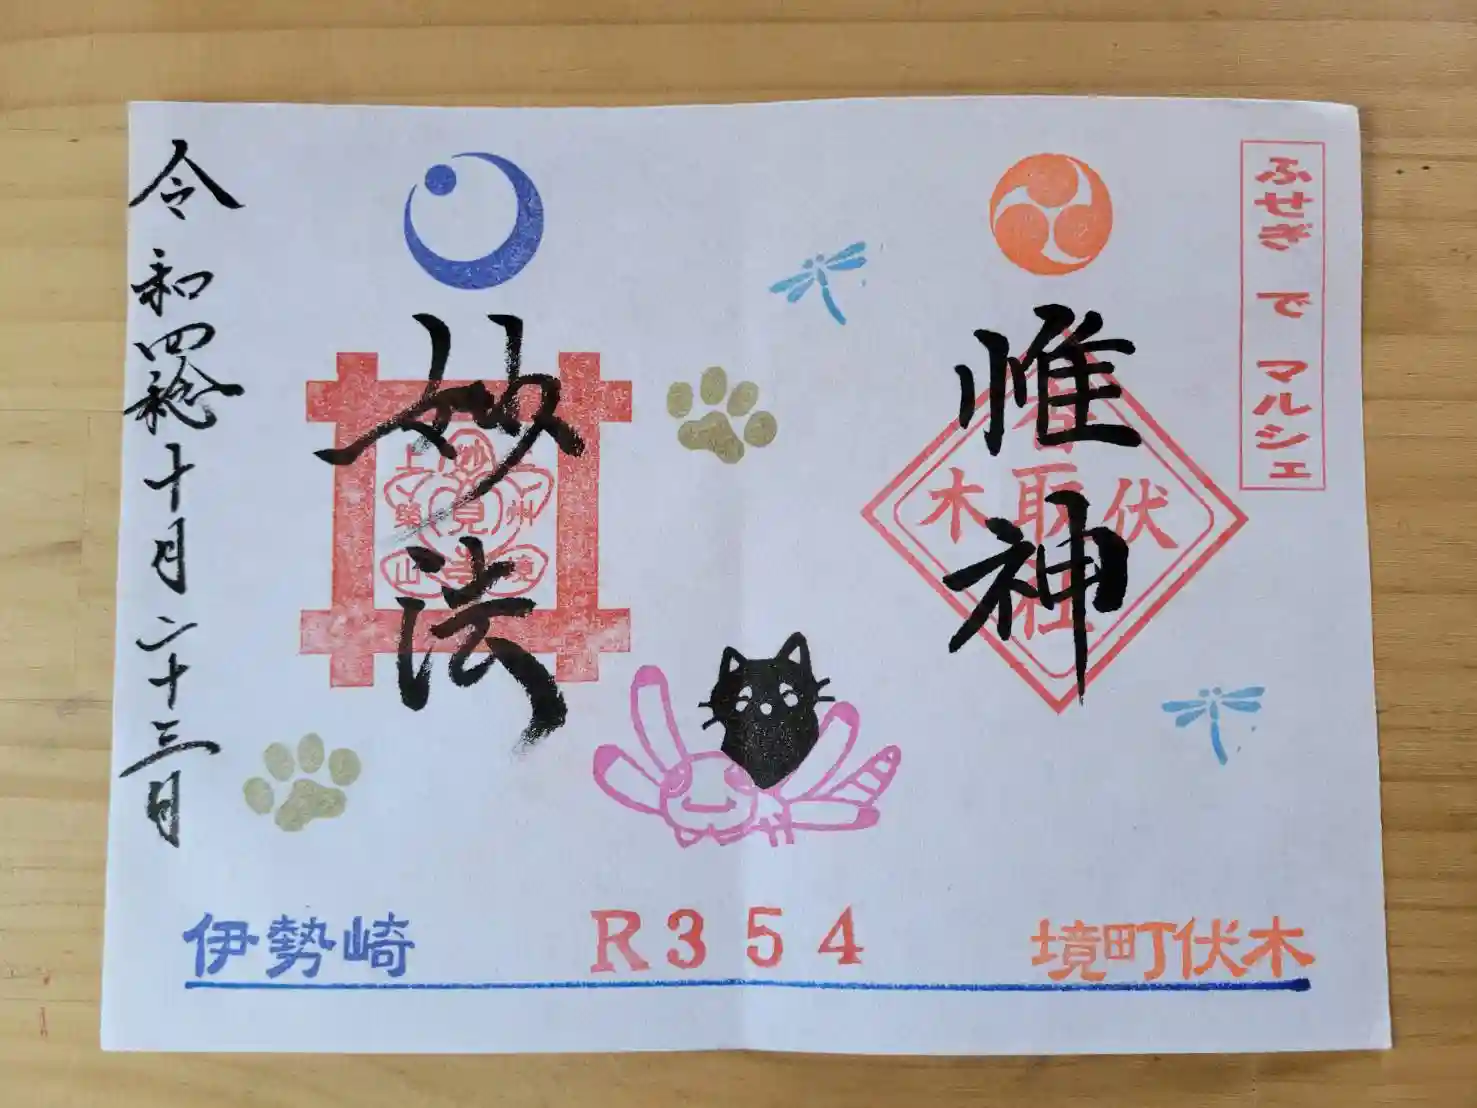 ふせぎ で マルシェ
惟神
伏木
取社
妙法
妙見寺
令和四稔十月二十三日
伊勢崎 R354 境町伏木